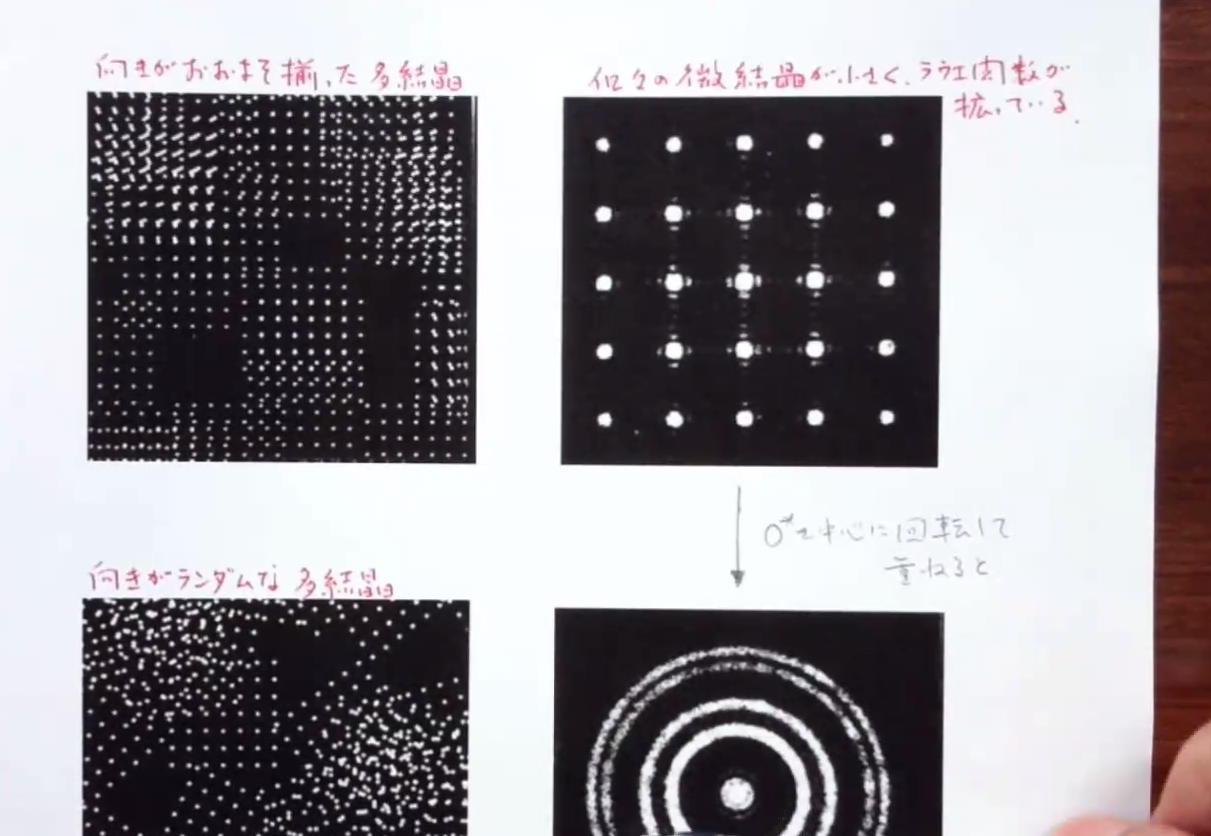 向きがおおよそ揃った多結晶
個々の微結晶が小さく、ラウエ関数が
拡っている.
O*を中心に回転して
重ねると
向きがランダムな多結晶